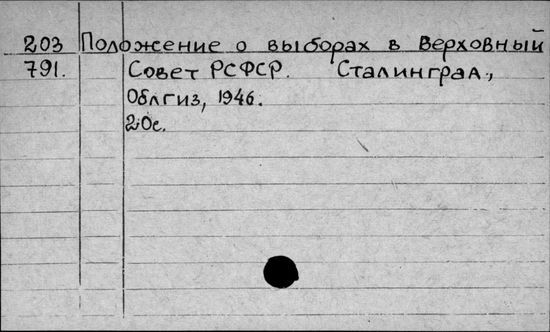 203 Положение о выборах в Верховный
791. Совет РСФСР. Сталинград,
Облгиз, 1946.
20с.